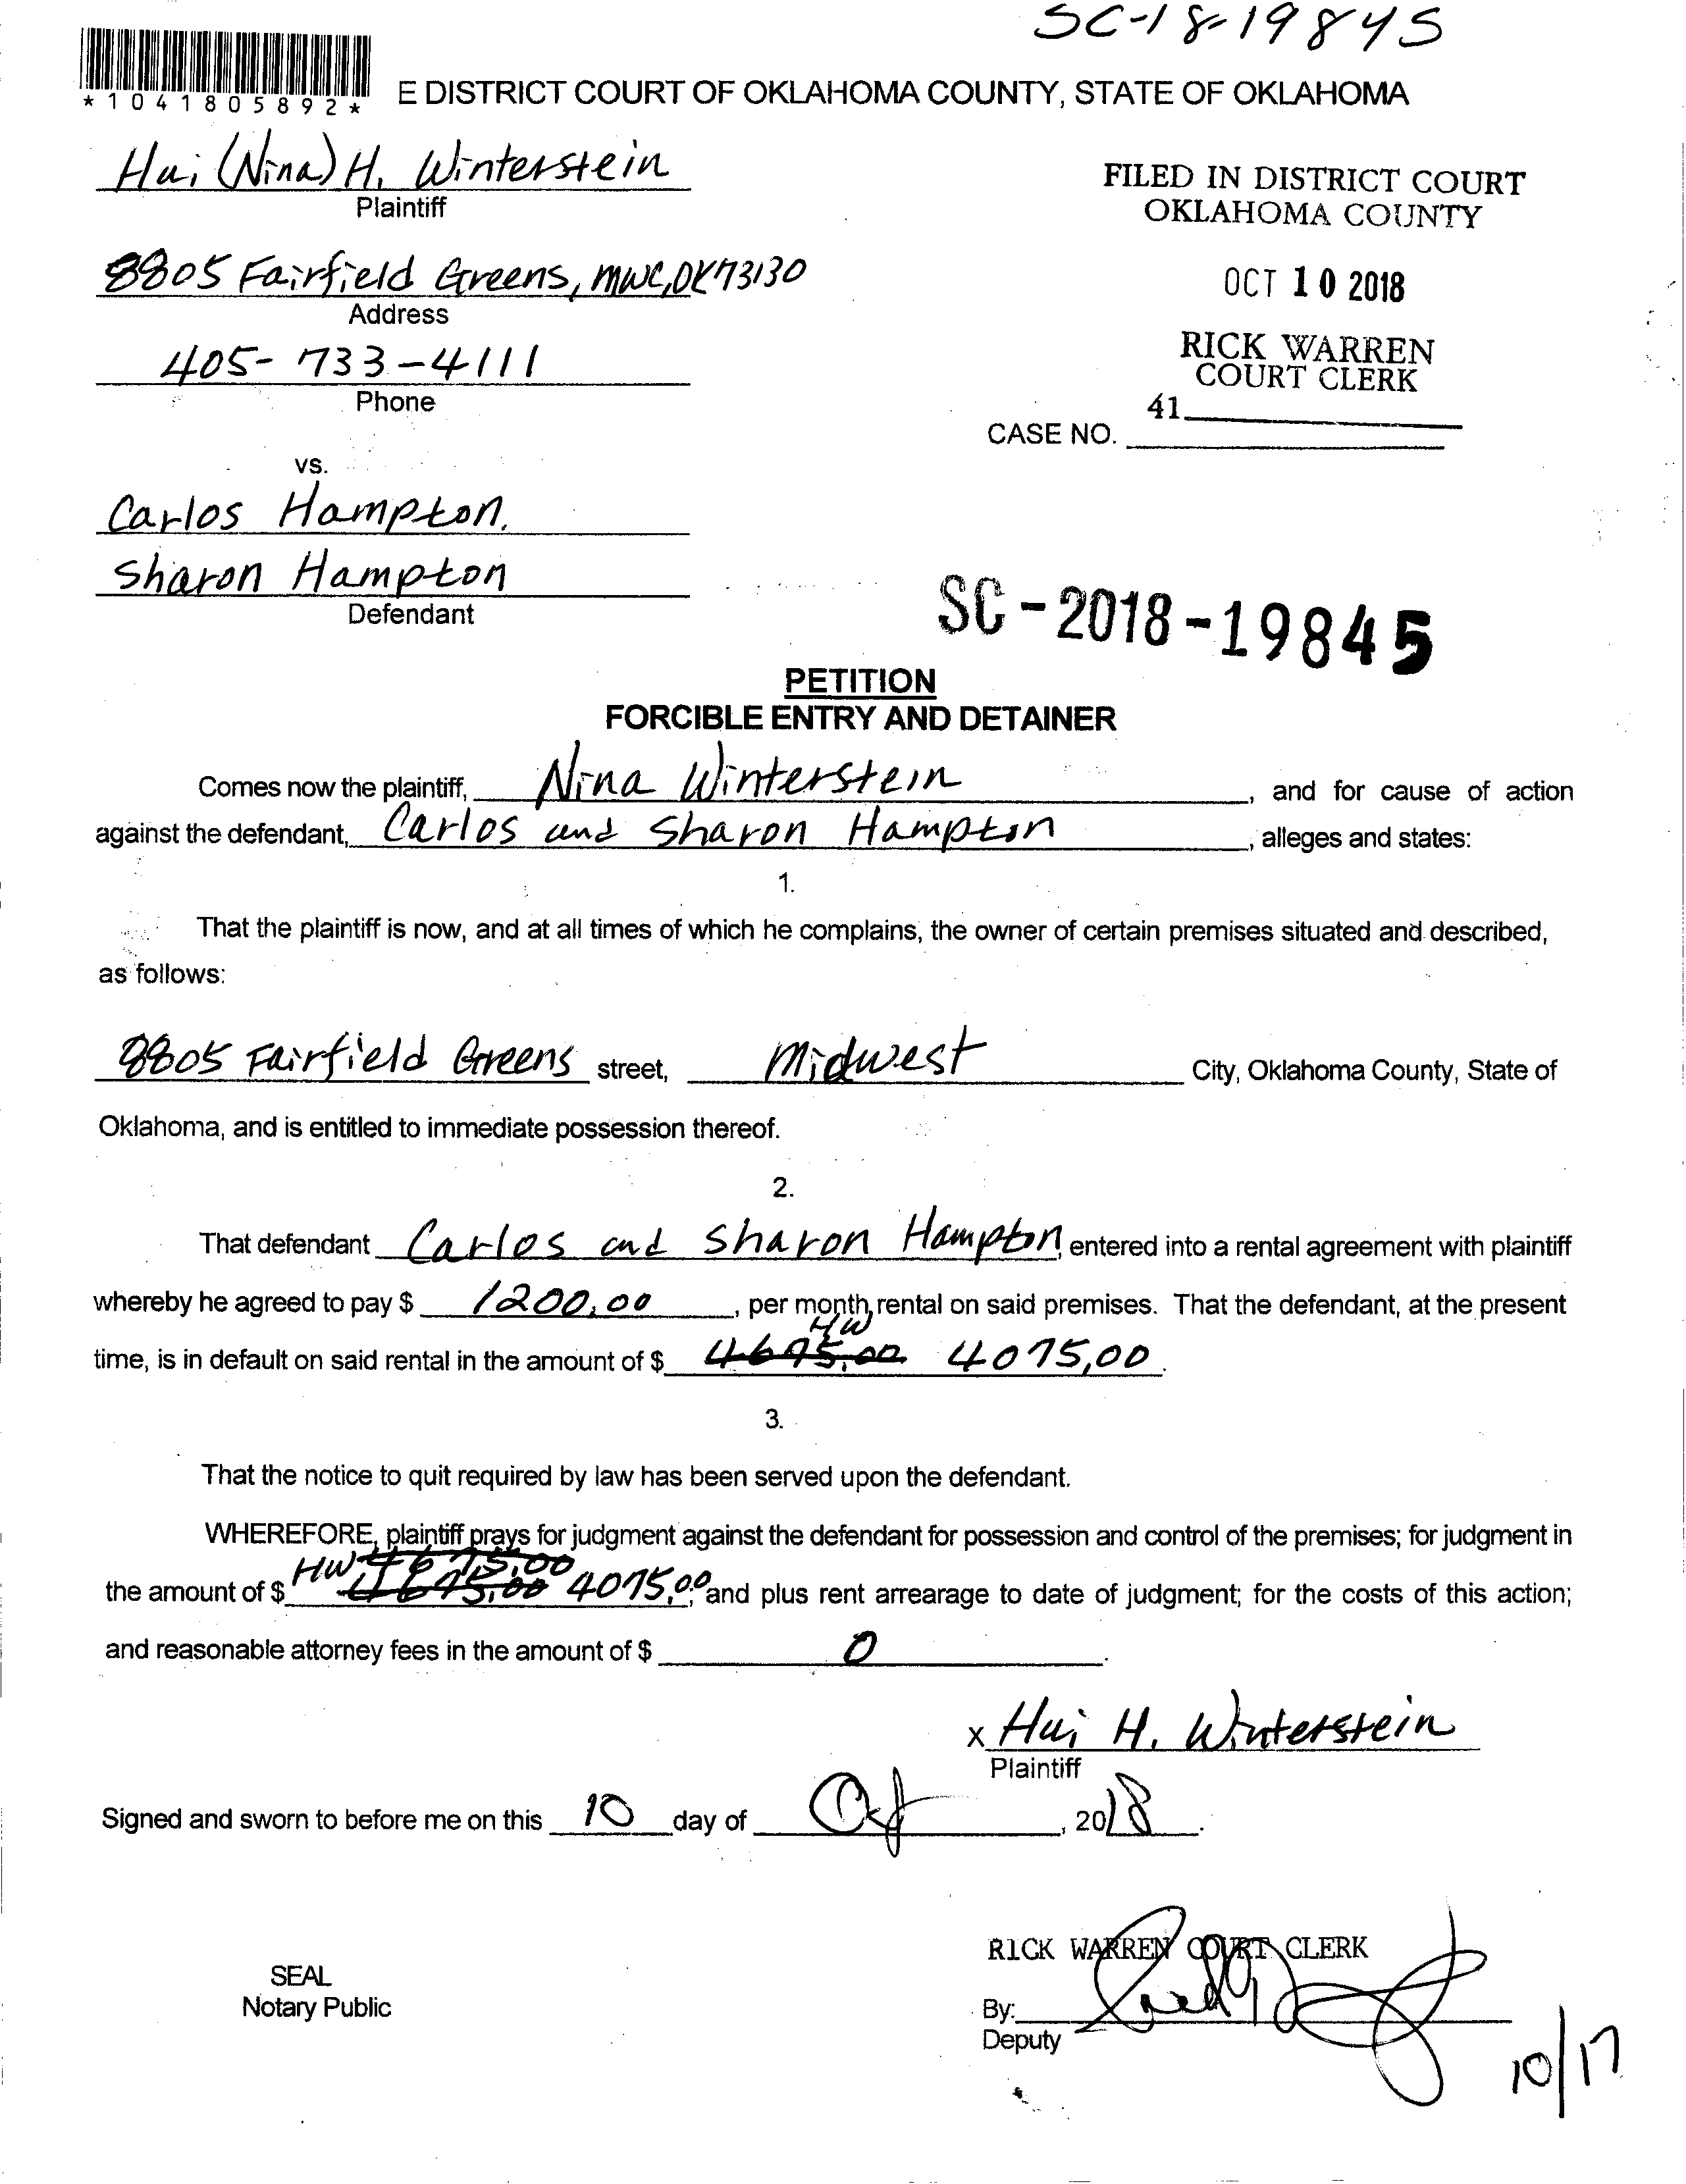 SC-18-19845
*1041805892*
E DISTRICT COURT OF OKLAHOMA COUNTY, STATE OF OKLAHOMA
Hui (Nina) H. Winterstein
Plaintiff
FILED IN DISTRICT COURT
OKLAHOMA COUNTY
8805 Fairfield Greens, MWC, OK 73130
Address
OCT 10 2018
405-733-4111
Phone
RICK WARREN
COURT CLERK
41
CASE NO.
vs.
Carlos Hampton.
Sharon Hampton
Defendant
SC-2018-19845
PETITION
FORCIBLE ENTRY AND DETAINER
Comes now the plaintiff, Nina Winterstein, and for cause of action
against the defendant, Carlos and Sharon Hampton, alleges and states:
1.
That the plaintiff is now, and at all times of which he complains, the owner of certain premises situated and described,
as follows:
8805 Fairfield Greens street, Midwest City, Oklahoma County, State of
Oklahoma, and is entitled to immediate possession thereof.
2.
That defendant Carlos and Sharon Hampton, entered into a rental agreement with plaintiff
whereby he agreed to pay $ 1200.00, per month rental on said premises. That the defendant, at the present
HW
time, is in default on said rental in the amount of $ 4695.00 4075,00.
3.
That the notice to quit required by law has been served upon the defendant.
WHEREFORE, plaintiff prays for judgment against the defendant for possession and control of the premises; for judgment in
HW 4675.00
the amount of $ 4675.00 4075,00, and plus rent arrearage to date of judgment; for the costs of this action;
and reasonable attorney fees in the amount of $ 0.
x Hui H. Winterstein
Plaintiff
Signed and sworn to before me on this 10 day of Oct, 2018.
RICK WARREN COURT CLERK
SEAL
Notary Public
By:
Deputy
10/17